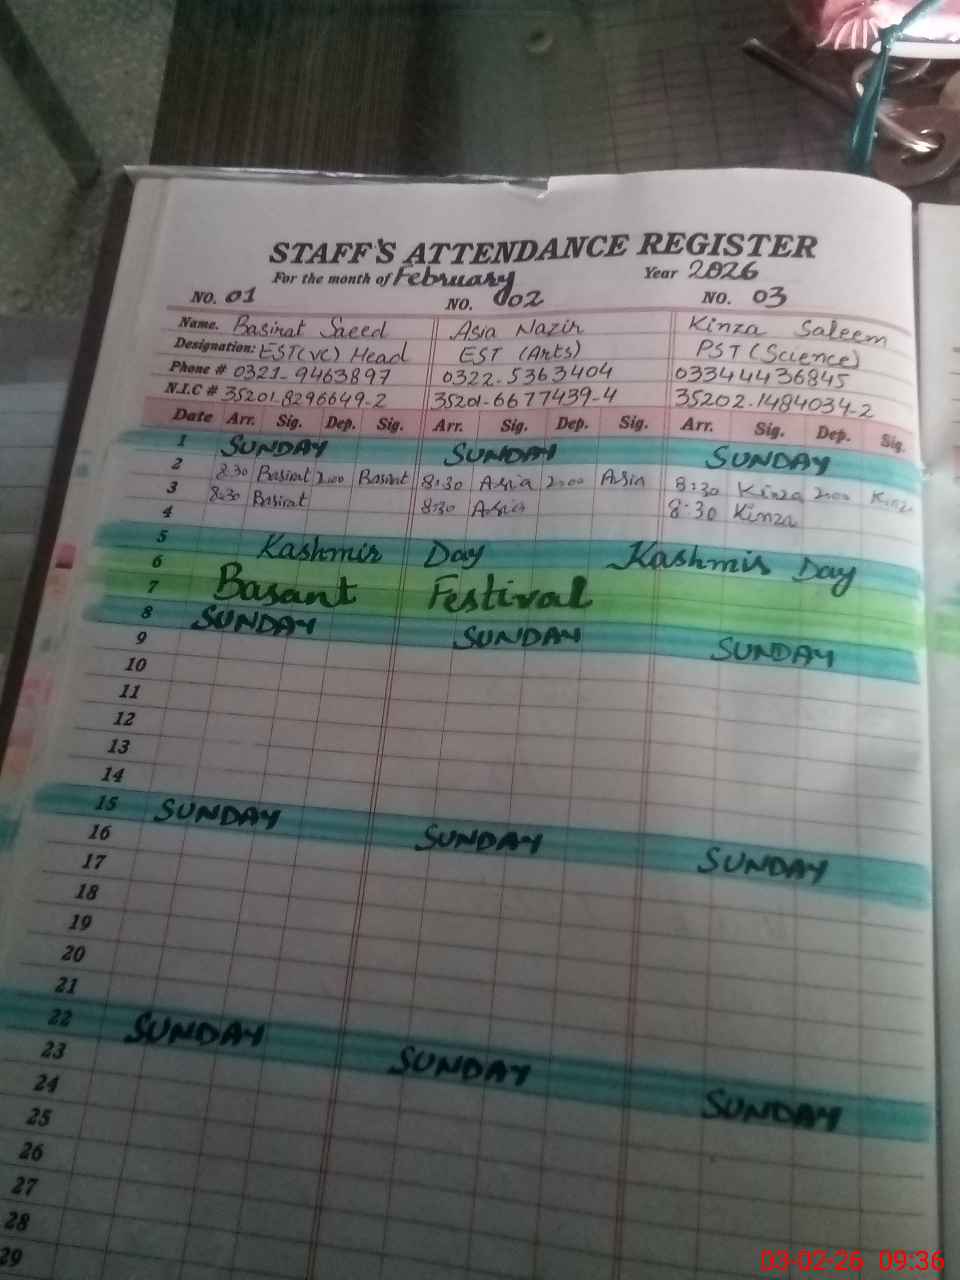 STAFF'S ATTENDANCE REGISTER
For the month of February Year 2026
NO. 01 NO. 002 NO. 03
Name. Basirat Saeed Asia Nazir Kinza Saleem
Designation: EST(VC) Head EST (Arts) PST (Science)
Phone # 0321-9463897 0322-5363404 03344436845
N.I.C # 35201.8296649-2 35201-6677439-4 35202.1484034-2
Date Arr. Sig. Dep. Sig. Arr. Sig. Dep. Sig. Arr. Sig. Dep. Sig.
1 SUNDAY SUNDAY SUNDAY
2 8:30 Basirat 2:00 Basirat 8:30 Asia 2:00 Asia 8:30 Kinza 2:00 Kinza
3 8:30 Basirat 8:30 Asia 8:30 Kinza
4
5 Kashmir Day Kashmir Day
6
7 Basant Festival
8 SUNDAY SUNDAY SUNDAY
9
10
11
12
13
14
15 SUNDAY SUNDAY SUNDAY
16
17
18
19
20
21
22 SUNDAY SUNDAY SUNDAY
23
24
25
26
27
28
29
03-02-26 09:36